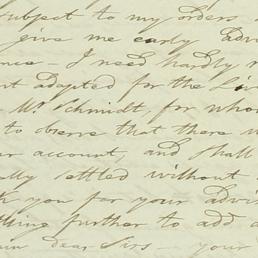 subject to my orders
give me early advi
nce - I need hardly r
nt adapted for the Liv
Mr. Schmidt for whom
to observe that there w
r account, and shall
ally settled without
k you for your advis
thing further to add a
ain dear Sirs - your